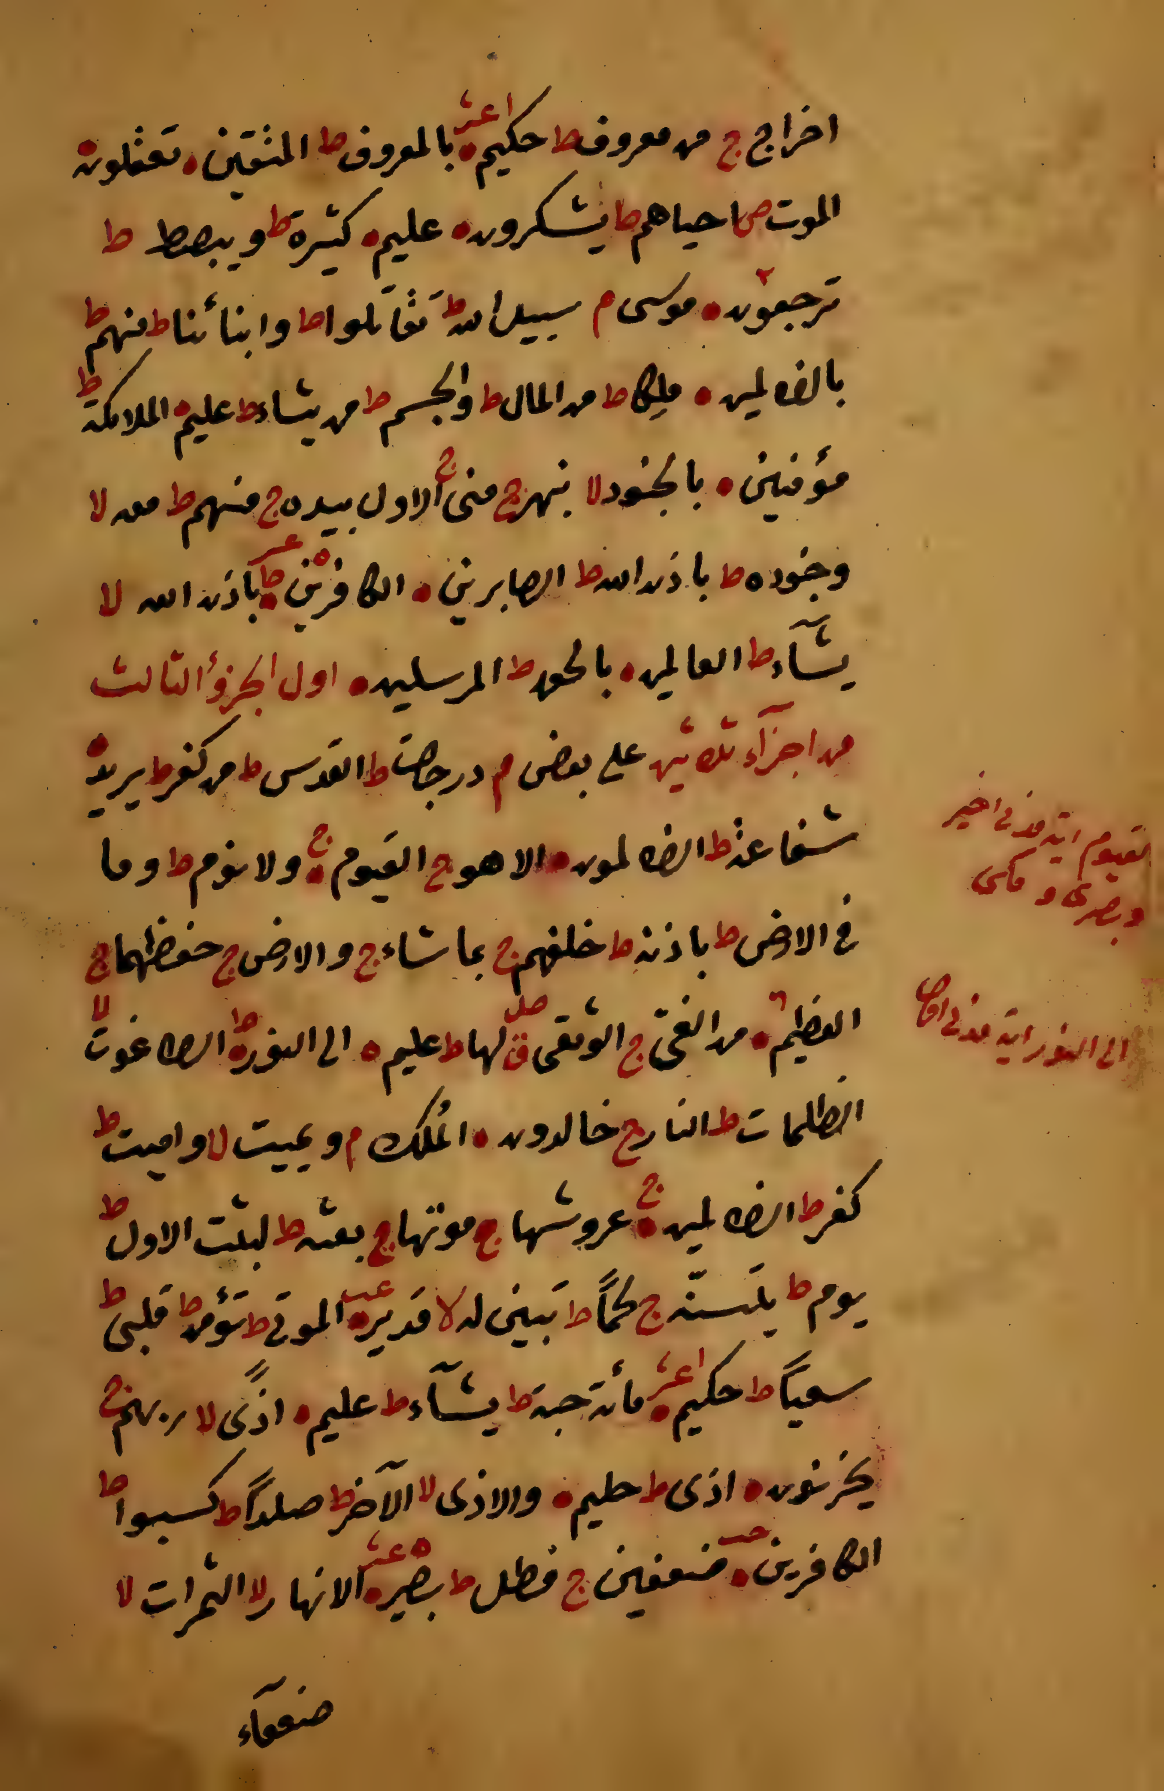 اخراج ج من معروف ط حكيم ه اعشر بالمعروف ط المتقين ه تعقلون ه
الموت ص احياهم ط يشكرون ه عليم ه كثيرة ط ويبصط ط
ترجعون ه موسى م سبيل الله ط تقاتلوا ط وابنائنا ط منهم ط
بالظالمين ه ملكا ط من المال ط والجسم ط من يشاء ط عليم ه الملائكة ط
مؤمنين ه بالجنود لا بنهر ج منى ج الاول بيده ج منهم ط معه لا
وجنوده ط باذن الله ط الصابرين ه الكافرين ط ه عشر باذن الله لا
يشآء ط العالمين ه بالحق ط المرسلين ه اول الجزؤ الثالث
من اجزآء ثلاثين على بعض م درجات ط القدس ط من كفر ط يريد ه
شفاعة ط الظالمون ه الا هو ج القيوم ه ج ولا نوم ط وما
في الارض ط باذنه ط خلفهم ج بما شاء ج والارض ج حفظهما ج
العظيم ه من الغى ج الوثقى ق صل لها ط عليم ه الى النور ه ط الطاغوت لا
الظلمات ط النار ج خالدون ه الملك م ويميت لا واميت ط
كفر ط الظالمين ه ج عروشها ج موتها ج بعثه ط لبثت الاول ط
يوم ط يتسنه ج لحمًا ط تبين له لا قدير ه عب الموتى ط تؤمن ط قلبى ط
سعيًا ط حكيم ه اعشر مائة حبة ط يشآء ط عليم ه اذًى لا ربهم ج
يحزنون ه اذى ط حليم ه والاذى لا الآخر ط صلدًا ط كسبوا ط
الكافرين ه خب ضعفين ج فطل ط بصير ه ه عشر الانهار لا الثمرات لا
ضعفآء
القيوم اية مدنى اخير
وبصرى ومكى
الى النور اية مدنى اول